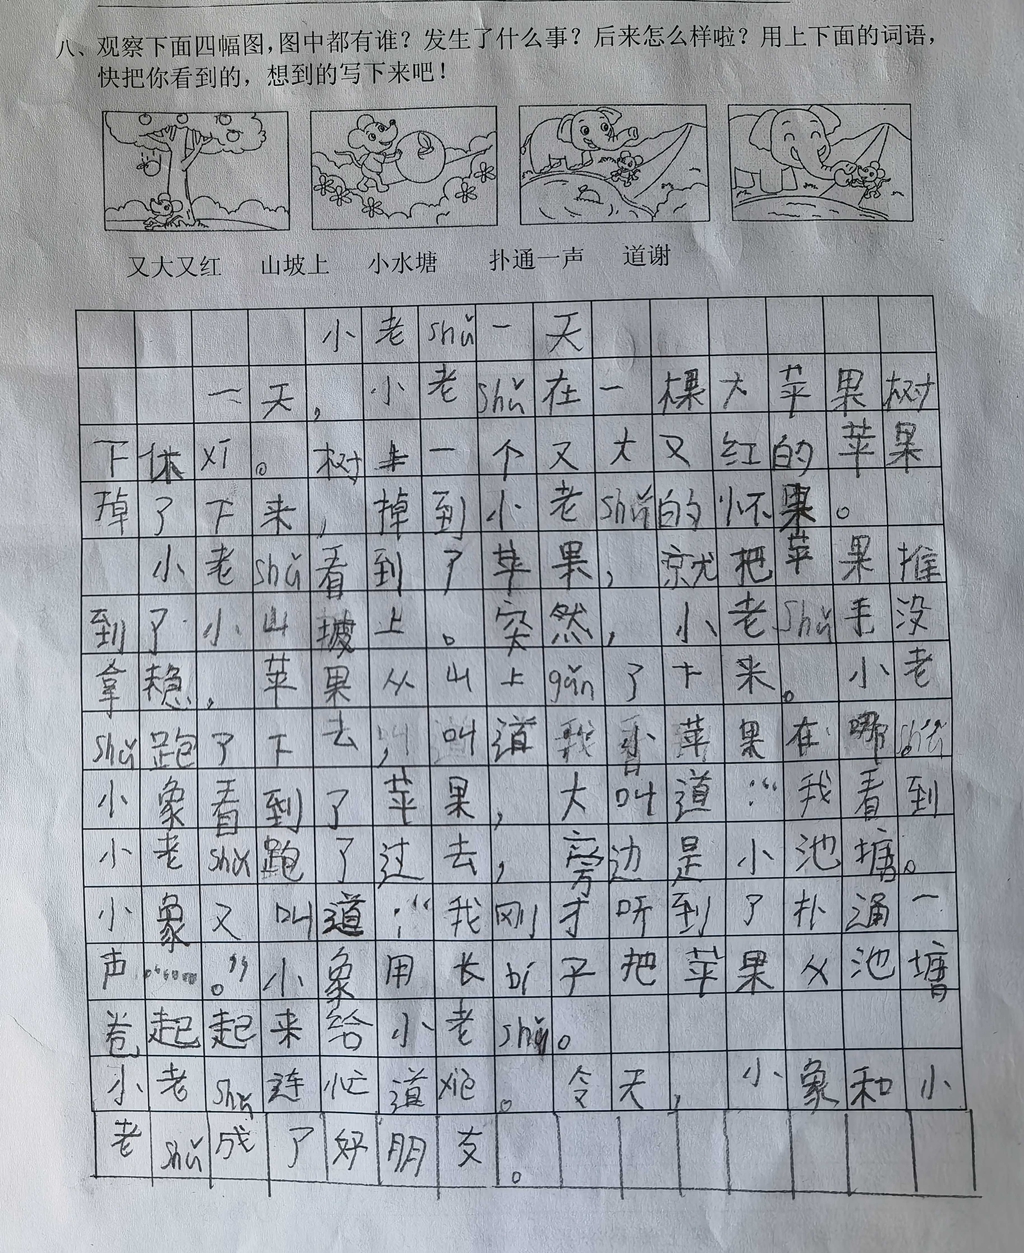 八、观察下面四幅图，图中都有谁？发生了什么事？后来怎么样啦？用上下面的词语，
快把你看到的，想到的写下来吧！
又大又红 山坡上 小水塘 扑通一声 道谢
小老shǔ一天
一天，小老shǔ在一棵大苹果树
下休xi。树上一个又大又红的苹果
掉了下来，掉到小老shǔ的怀里。
小老shǔ看到了苹果，就把苹果推
到了小山坡上。突然，小老shǔ手没
拿稳，苹果从山上gǔn了下来。小老
shǔ跑了下去，叫道我看苹果在哪。
小象看到了苹果，大叫道：“我看到
小老shǔ跑了过去，旁边是小池塘。
小象又叫道：“我刚才听到了扑通一
声……。”小象用长bí子把苹果从池塘
卷起起来给小老shǔ。
小老shǔ连忙道xiè。今天，小象和小
老shǔ成了好朋友。